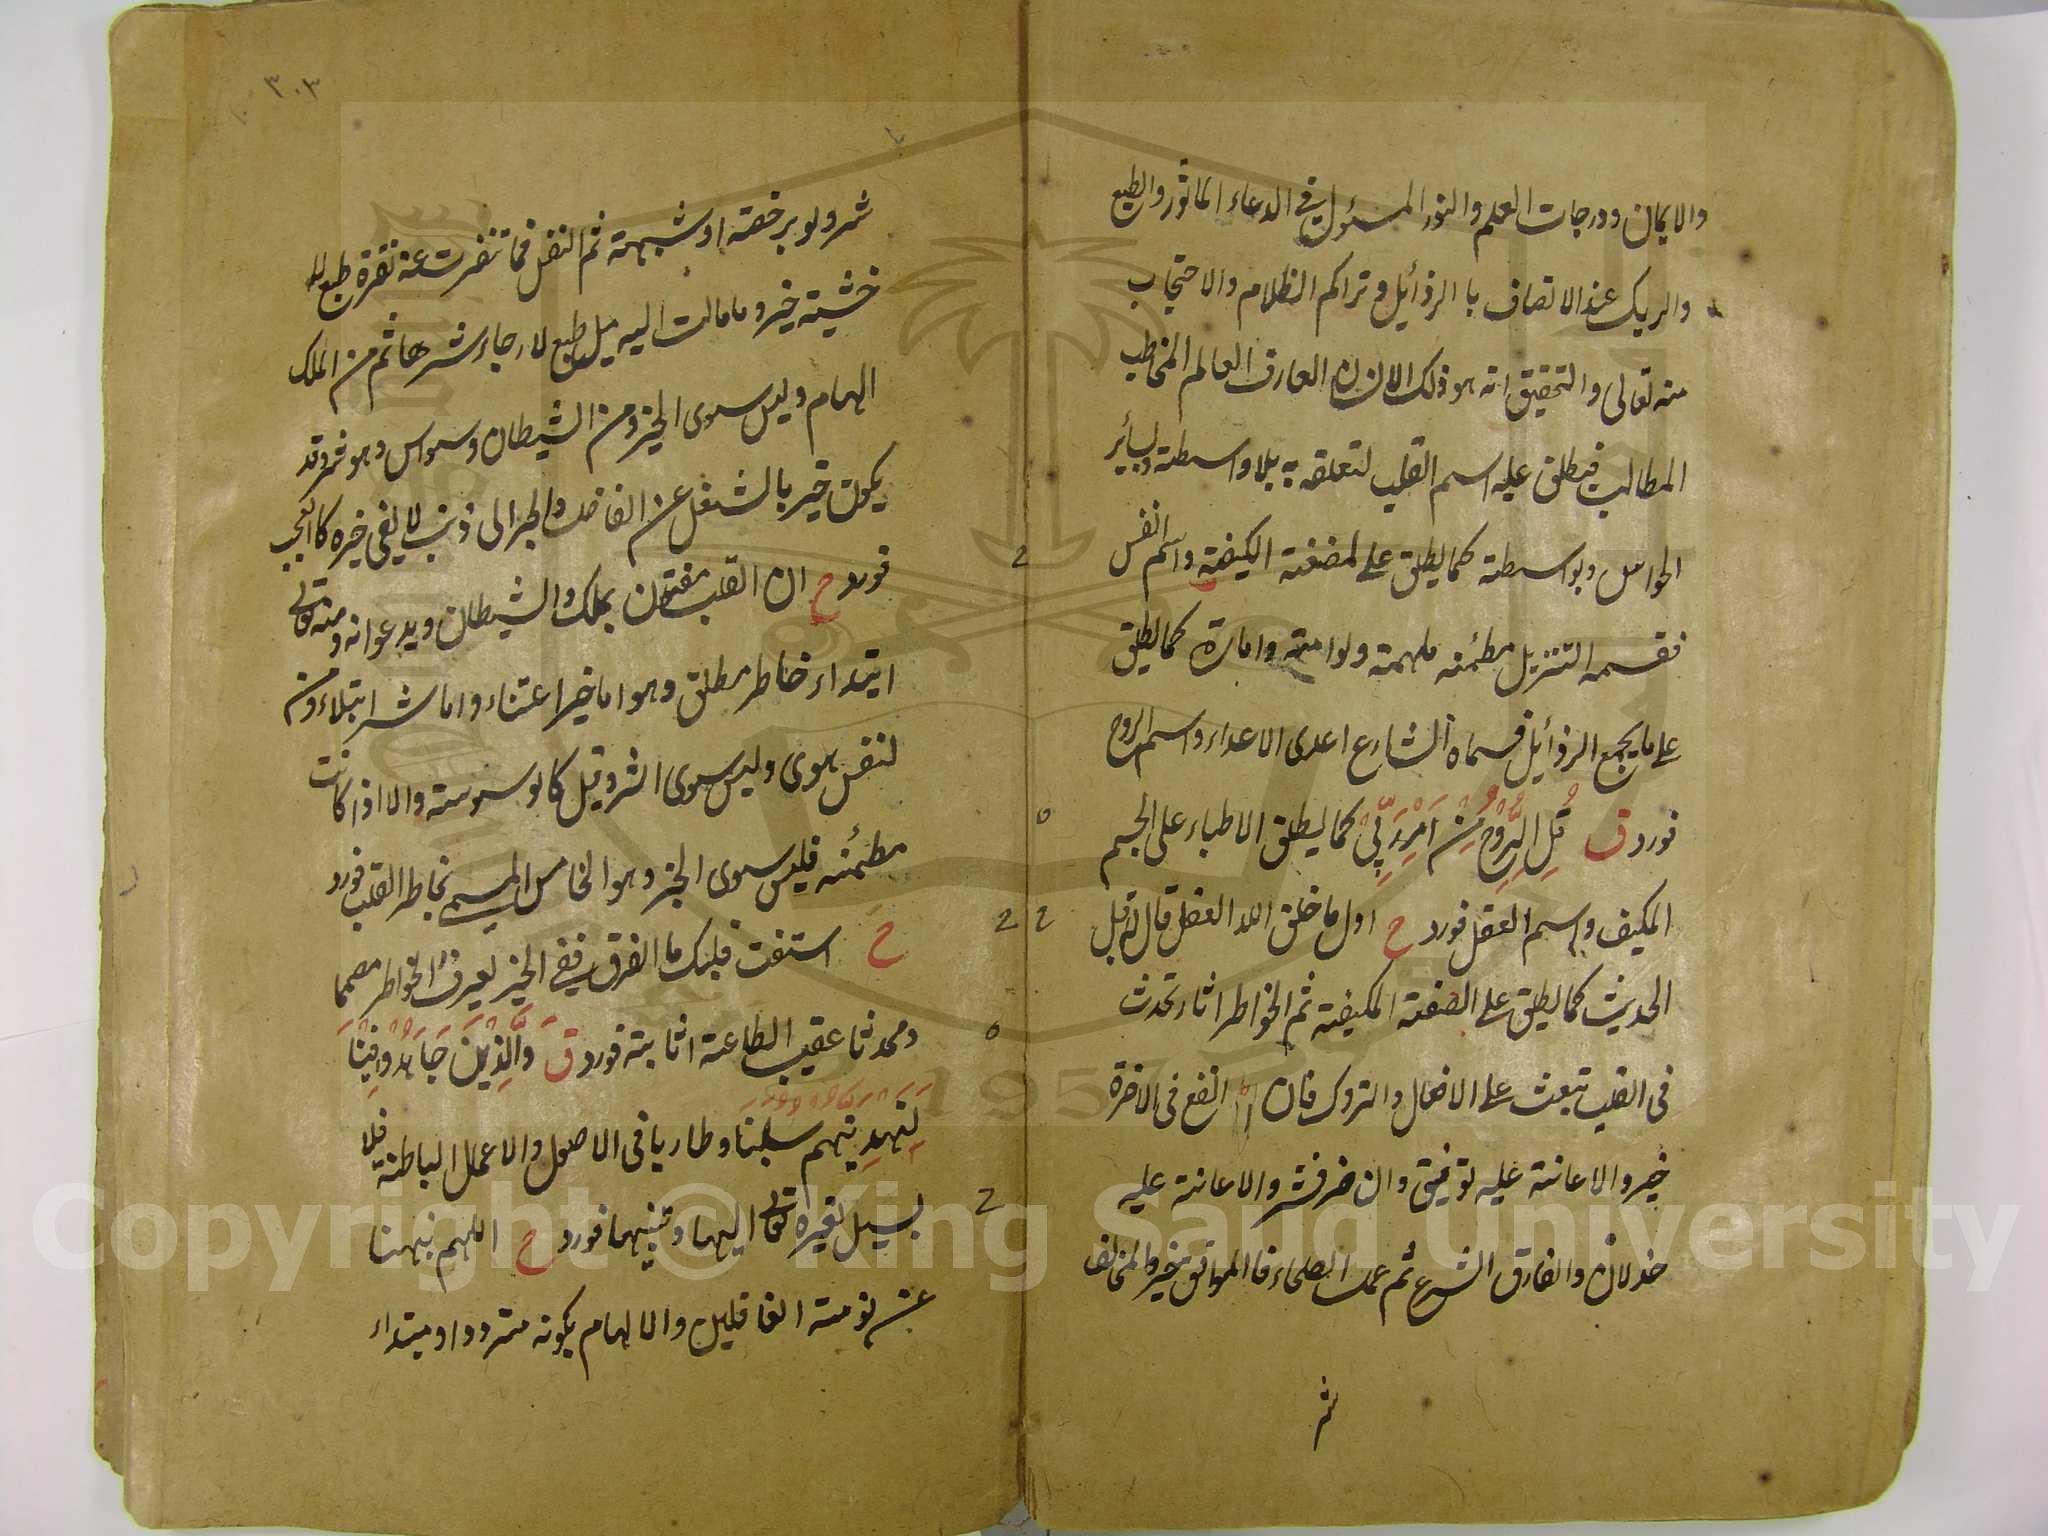 والايمان ودرجات العلم والنور المسئول في الدعاء الماثور والطبع
والرين عند الاتصاف با الرذائل وتراكم الظلام والاحتجاب
منه تعالى والتحقيق انه هو ذلك الانسان العارف العالم المخاطب
المطالب فيطلق عليه اسم القلب لتعلقه به بلا واسطة وبسائر
الحواس وبواسطته كما يطلق على لمضغته الكيفة واسم النفس
فقسمه التنزيل مطمئنه ملهمة ولوامة وامارة كما يطلق
على ما يجمع الرذائل فسماه الشارع اعدى الاعداء واسم الروح
فورد ق قُلِ الرُّوْحُ مِنْ اَمْرِ رَبِّيْ كما يطلق الاطباء على الجسم
المكيف واسم العقل فورد ح اول ما خلق الله العقل قال له قبل
الحديث كما يطلق على الصفة المكيفة ثم الخواطر اثار تحدث
فى القلب تبعث على الافعال والتروك فان النفع فى الاخرة
خير والاعانة عليه توفيق وان ضر فشر والاعانة عليه
خذلان والفارق الشرع ثم عمل الصلحاء فالموافق خير والمخالف
شر
٣٠٣
شر ولو برخصة او شبهة ثم النفس فما تنفرت عنه نفرة طبع لا
خشية خير وما مالت اليه ميل طبع لا رجاء شر هاثم من الملك
الهام وليس سوى الخير ومن الشيطان وسواس وهو شر وقد
يكون خير بالشغل عن الفاضل والجر الى ذنب لا يفى خيره كالعجب
فورد ح ان القلب مفتون بملك والشيطان ويدعوانه ومنه تعالى
ابتداء خاطر مطلق وهو اما خير اعتناء واما شر ابتلاء ومن
لنفس هوى وليس سوى الشر وقيل كالوسوسة والا اذا كانت
مطمئنه فليس سوى الخير وهو الخامس المسمى بخاطر القلب فورد
ح استفت قلبك ما الفرق ففى الخير يعرف الخواطر مصمما
ومحدثا عقيب الطاعة اثابته فورد ق وَالَّذِيْنَ جَاهَدُوْا فِيْنَا
لَنَهْدِيَنَّهُمْ سبلنا وطاريا فى الاصول والاعمال الباطنة فلا
بسبيل لغيره تعالى اليهما وتنبيهما فورد ح اللهم نبهنا
عن نومة الغافلين والالهام بكونه مترددا ومبتداء
Copyright © King Saud University
1957